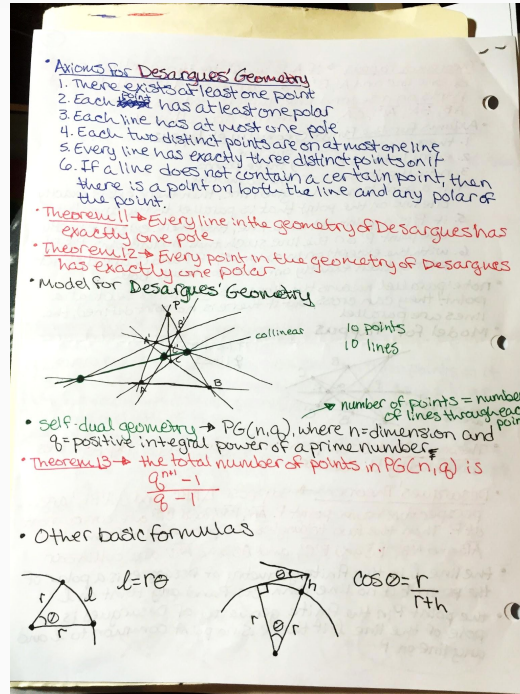 • Axioms for Desargues' Geometry
1. There exists at least one point
2. Each point has at least one polar
3. Each line has at most one pole
4. Each two distinct points are on at most one line
5. Every line has exactly three distinct points on it
6. If a line does not contain a certain point, then
there is a point on both the line and any polar of
the point.
• Theorem 11 → Every line in the geometry of Desargues has
exactly one pole
• Theorem 12 → Every point in the geometry of Desargues
has exactly one polar
• Model for Desargues' Geometry
P
A' B'
C'
C
A B
collinear
10 points
10 lines
→ number of points = number
of lines through each
point
• self-dual geometry → PG(n,q), where n=dimension and
q=positive integral power of a prime number
• Theorem 13 → the total number of points in PG(n,q) is
q^{n+1} - 1
q - 1
• Other basic formulas
r l θ r
l=rθ
θ r h r θ r
cos θ = r
r+h